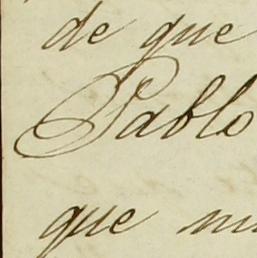 de que
Pablo
que